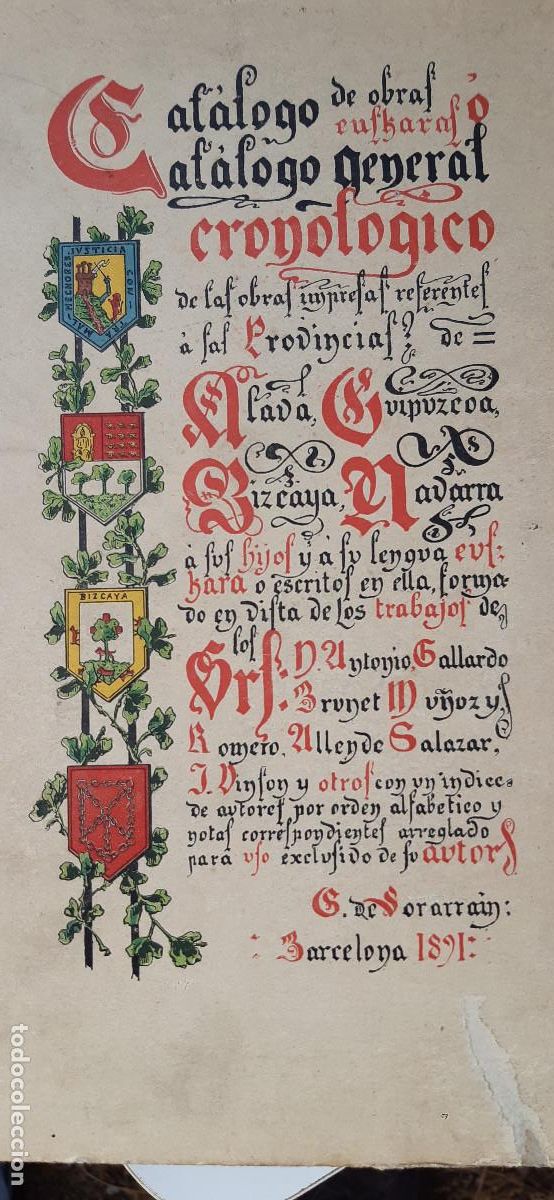 Catàlogo de obras
euskaras ó
Catàlogo general
cronologico
de las obras impresas referentes
à las Provincias de =
Alava, Guipuzcoa,
Bizcaya, Navarra
à sus hijos y à su lengua eus-
kara o escritos en ella, forma-
do en vista de los trabajos de
los
Srs: D. Antonio Gallardo
Brunet Muñoz y
Romero, Allende Salazar,
J. Vinson y otros con un indice
de autores por orden alfabetico y
notas correspondientes arreglado
para uso exclusivo de su autor
G. de Sorarrain:
: Barcelona 1891:
JUSTICIA
CON-
TRA
MAL-
HECHORES
BIZCAYA
todocoleccion